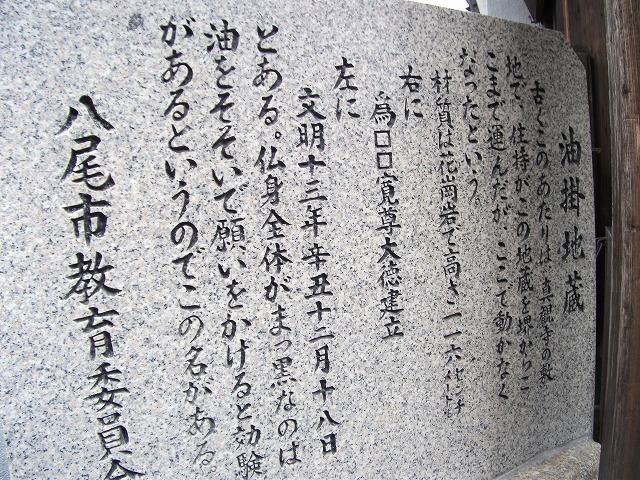 油掛地蔵
古くこのあたりは、真観寺の敷
地で、住持がこの地蔵を堺からこ
こまで運んだが、ここで動かなく
なったという。
材質は花崗岩で高さ一一六センチメートル
右に
為□□寛尊大徳建立
左に
文明十三年辛丑十二月十八日
とある。仏身全体がまっ黒なのは
油をそそいで願いをかけると効験
があるというのでこの名がある。
八尾市教育委員会